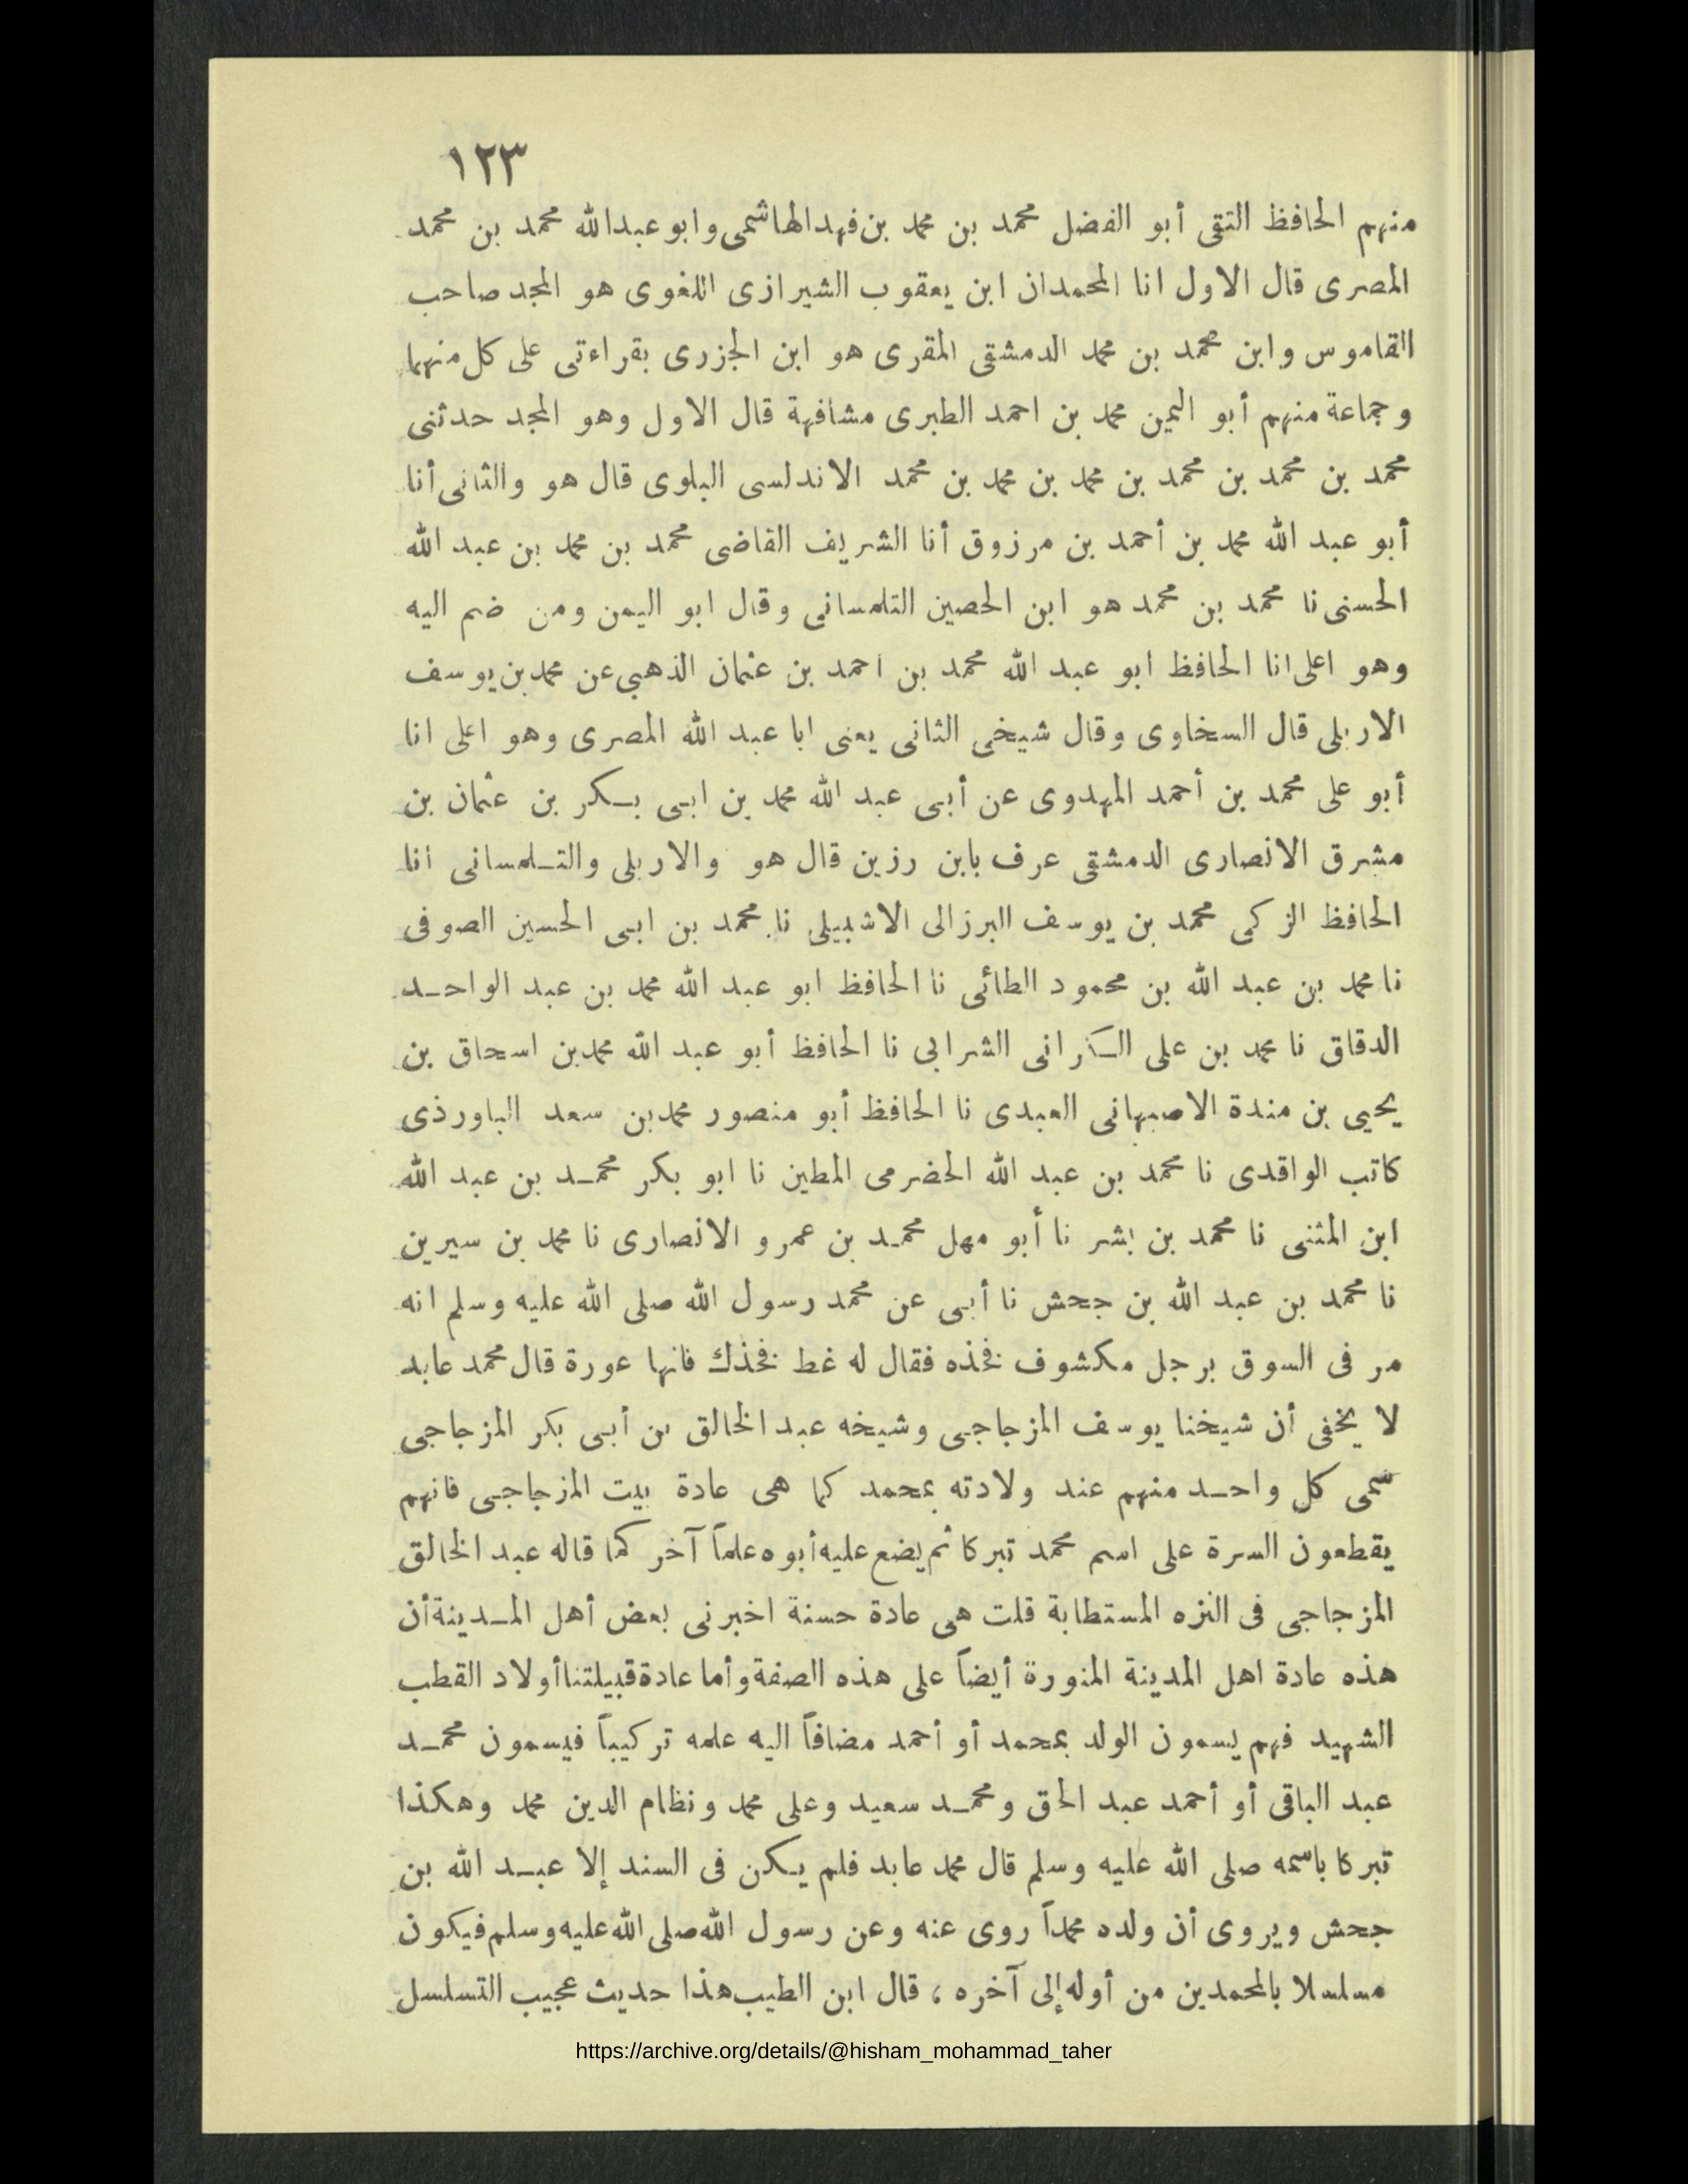 ١٢٣
منهم الحافظ التقى أبو الفضل محمد بن محمد بن فهد الهاشمى وابو عبدالله محمد بن محمد
المصرى قال الاول انا المحمدان ابن يعقوب الشيرازى اللغوى هو المجد صاحب
القاموس وابن محمد بن محمد الدمشقى المقرى هو ابن الجزرى بقراءتى على كل منهما
وجماعة منهم أبو اليمين محمد بن احمد الطبرى مشافهة قال الاول وهو المجد حدثنى
محمد بن محمد بن محمد بن محمد بن محمد بن محمد الاندلسى البلوى قال هو والثانى أنا
أبو عبد الله محمد بن أحمد بن مرزوق أنا الشريف القاضى محمد بن محمد بن عبد الله
الحسنى نا محمد بن محمد هو ابن الحصين التلمسانى وقال ابو اليمن ومن ضم اليه
وهو اعلى انا الحافظ ابو عبد الله محمد بن احمد بن عثمان الذهبي عن محمد بن يوسف
الاربلى قال السخاوى وقال شيخى الثانى يعنى ابا عبد الله المصرى وهو اعلى انا
أبو على محمد بن أحمد المهدوى عن أبى عبد الله محمد بن ابى بكر بن عثمان بن
مشرق الانصارى الدمشقى عرف بابن رزين قال هو والاربلى والتلمسانى انا
الحافظ الزكى محمد بن يوسف البرزالى الاشبيلى نا محمد بن ابى الحسين الصوفى
نا محمد بن عبد الله بن محمود الطائى نا الحافظ ابو عبد الله محمد بن عبد الواحد
الدقاق نا محمد بن على الكرانى الشرابى نا الحافظ أبو عبد الله محمد بن اسحاق بن
يحيى بن مندة الاصبهانى العبدى نا الحافظ أبو منصور محمد بن سعد الباورذى
كاتب الواقدى نا محمد بن عبد الله الحضرمى المطين نا ابو بكر محمد بن عبد الله
ابن المثنى نا محمد بن بشر نا أبو مهل محمد بن عمرو الانصارى نا محمد بن سيرين
نا محمد بن عبد الله بن جحش نا أبى عن محمد رسول الله صلى الله عليه وسلم انه
مر فى السوق برجل مكشوف فخذه فقال له غط فخذك فانها عورة قال محمد عابد
لا يخفى أن شيخنا يوسف المزجاجى وشيخه عبد الخالق بن أبى بكر المزجاجى
سمى كل واحد منهم عند ولادته بمحمد كما هى عادة بيت المزجاجى فانهم
يقطعون السرة على اسم محمد تبركا ثم يضع عليه أبوه علماً آخر كما قاله عبد الخالق
المزجاجى فى النزه المستطابة قلت هى عادة حسنة اخبرنى بعض أهل المدينة أن
هذه عادة اهل المدينة المنورة أيضاً على هذه الصفة وأما عادة قبيلتنا أولاد القطب
الشهيد فهم يسمون الولد بمحمد أو أحمد مضافاً اليه علمه تركيباً فيسمون محمد
عبد الباقى أو أحمد عبد الحق ومحمد سعيد وعلى محمد ونظام الدين محمد وهكذا
تبركا باسمه صلى الله عليه وسلم قال محمد عابد فلم يكن فى السند إلا عبد الله بن
جحش ويروى أن ولده محمداً روى عنه وعن رسول الله صلى الله عليه وسلم فيكون
مسلسلا بالمحمدين من أوله إلى آخره ، قال ابن الطيب هذا حديث عجيب التسلسل
https://archive.org/details/@hisham_mohammad_taher